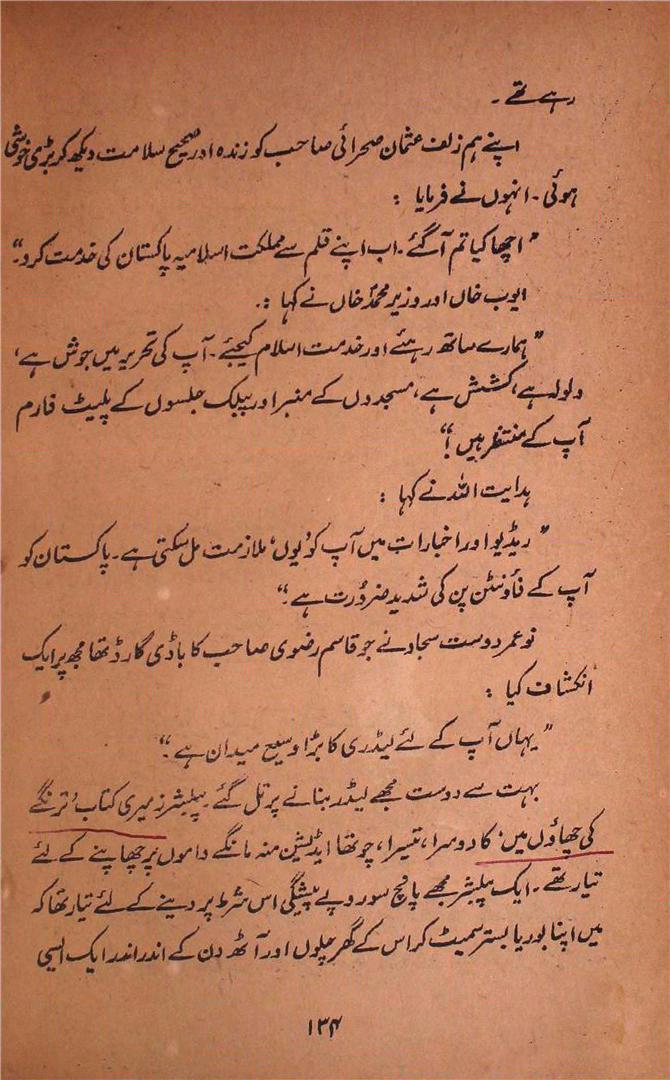 رہے تھے ۔
اپنے ہم زلف عثمان صحرائی صاحب کو زندہ اور صحیح سلامت دیکھ کر بڑی خوشی
ہوئی ۔ انہوں نے فرمایا :
"اچھا کیا تم آگئے ۔ اب اپنے قلم سے مملکت اسلامیہ پاکستان کی خدمت کرو ۔"
ایوب خاں اور وزیر محمد خاں نے کہا :۔
"ہمارے ساتھ رہئے اور خدمت اسلام کیجئے ۔ آپ کی تحریر میں جوش ہے ،
ولولہ ہے ، کشش ہے ، مسجدوں کے منبر اور پبلک جلسوں کے پلیٹ فارم
آپ کے منتظر ہیں !"
ہدایت اللہ نے کہا :
"ریڈیو اور اخبارات میں آپ کو 'یوں' ملازمت مل سکتی ہے ۔ پاکستان کو
آپ کے فاؤنٹن پن کی شدید ضرورت ہے ۔"
نو عمر دوست سجاد نے جو قاسم رضوی صاحب کا باڈی گارڈ تھا مجھ پر ایک
انکشاف کیا :
"یہاں آپ کے لئے لیڈری کا بڑا وسیع میدان ہے ۔"
بہت سے دوست مجھے لیڈر بنانے پر تل گئے ۔ پبلشرز میری کتاب 'ترنگے
کی چھاؤں میں' کا دوسرا ، تیسرا ، چوتھا ایڈیشن منہ مانگے داموں پر چھاپنے کے لئے
تیار تھے ۔ ایک پبلشر مجھے پانچ سو روپے پیشگی اس شرط پر دینے کے لئے تیار تھا کہ
میں اپنا بوریا بستر سمیٹ کر اس کے گھر چلوں اور آٹھ دن کے اندر اندر ایک ایسی
۱۳۴